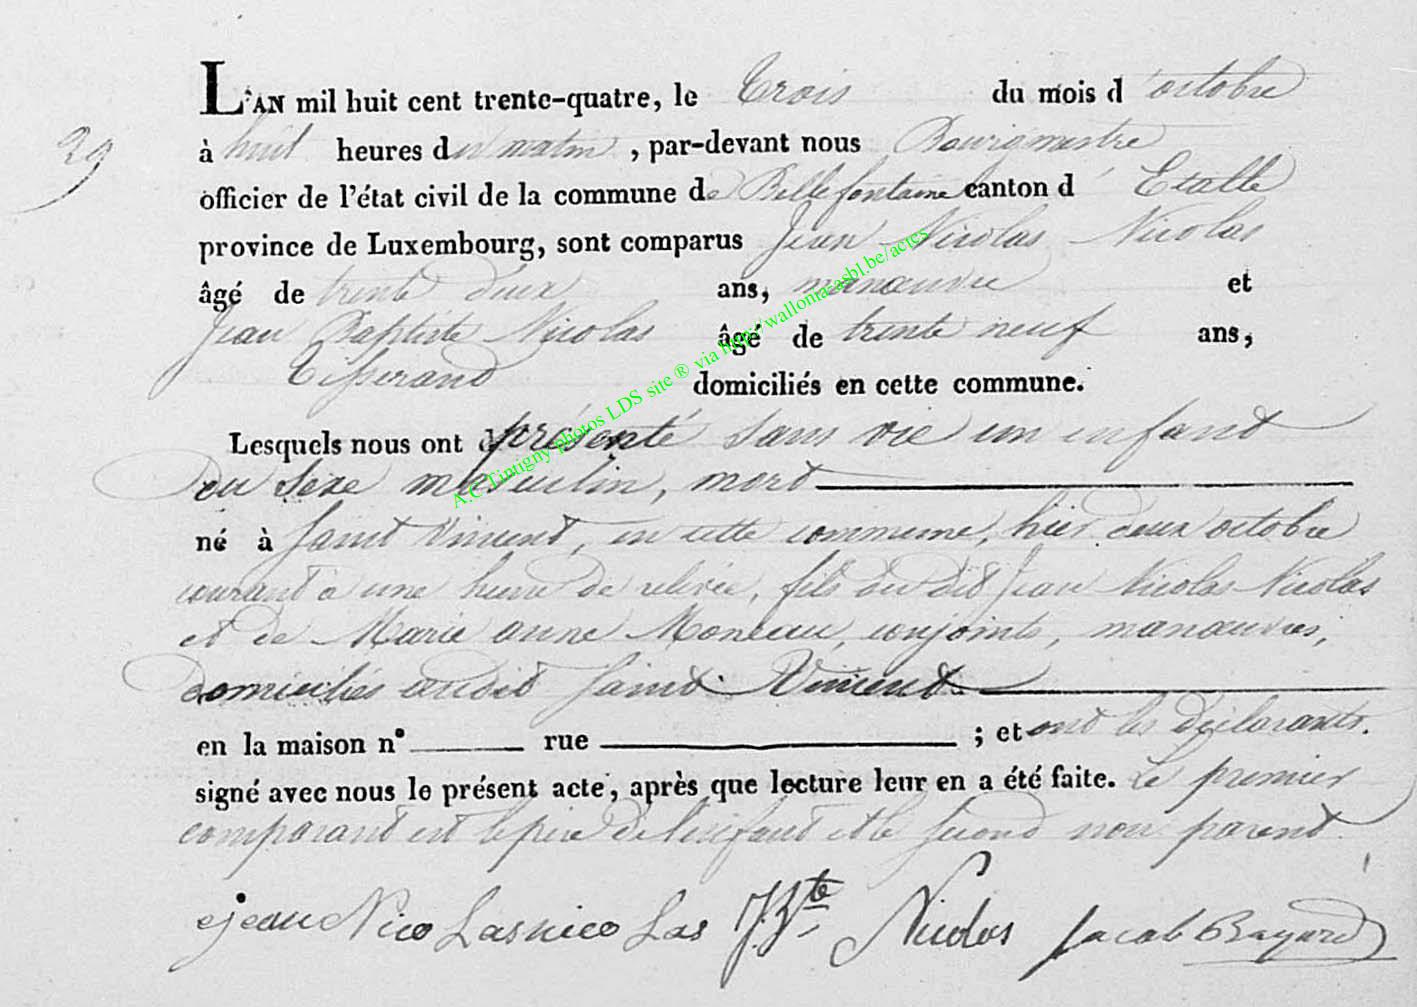 L'AN mil huit cent trente-quatre, le Trois du mois d'octobre
39
à huit heures du matin, par-devant nous Bourgmestre
officier de l'état civil de la commune de Bellefontaine canton d'Etalle
province de Luxembourg, sont comparus Jean Nicolas Nicolas
âgé de trente deux ans, manœuvre et
Jean Baptiste Nicolas âgé de trente neuf ans,
Tisserand domiciliés en cette commune.
Lesquels nous ont présenté sans vie un enfant
du sexe masculin, mort
né à Saint Vincent, en cette commune, hier deux octobre
courant à une heure de relevée, fils du dit Jean Nicolas Nicolas
et de Marie anne Moneau, conjoints, manœuvres,
domiciliés audit Saint Vincent
en la maison n° rue ; et ont les déclarants
signé avec nous le présent acte, après que lecture leur en a été faite. Le premier
comparant est le père de l'enfant et le second non parent
jean Nico Lasnico Las J Bte Nicolas Jacob Bayard
A.C Tintigny photos LDS site ® via http://wallonia-asbl.be/actes